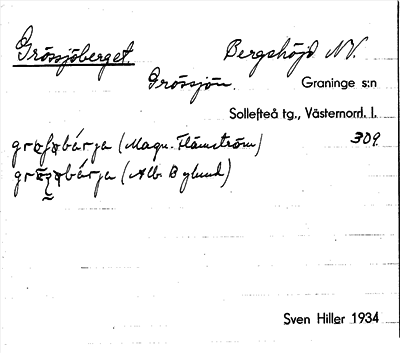 Grössjöberget. Bergshöjd NV.
Grössjön. Graninge s:n
Sollefteå tg., Västernorrl. l.
(Magn. Flämström) 309
(Alb. Bylund)
Sven Hiller 1934